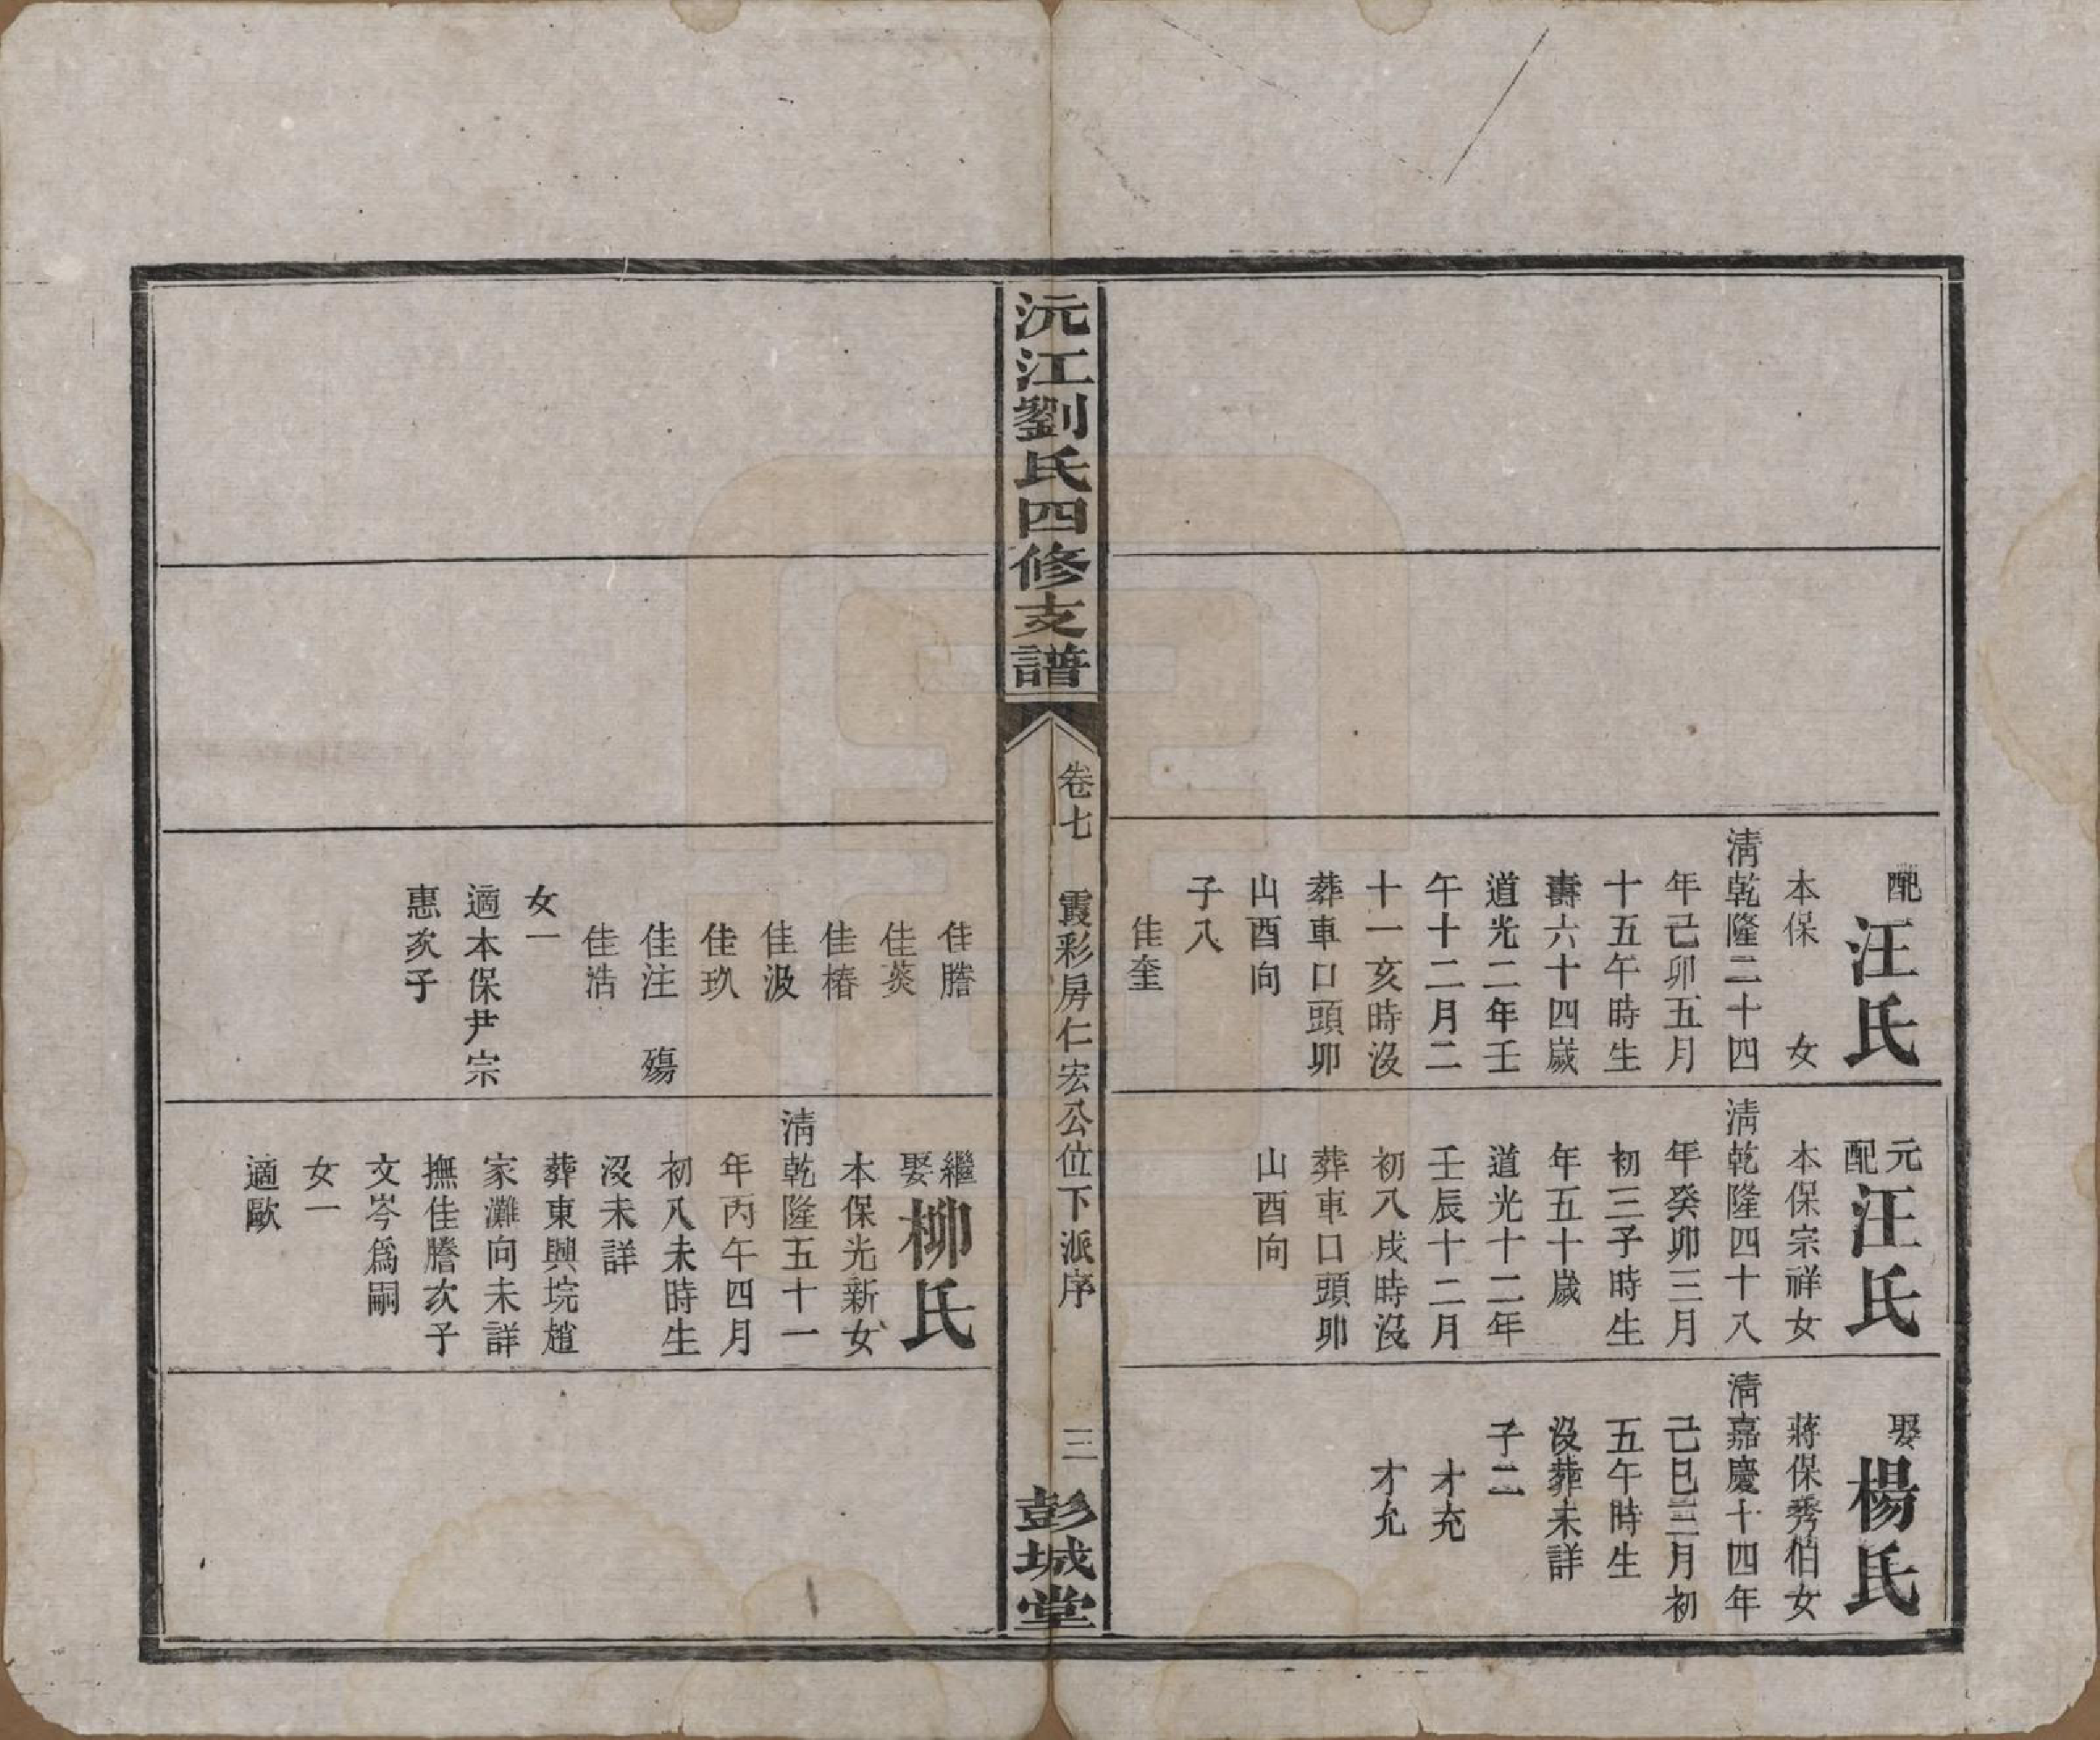 配汪氏
本保　女
淸乾隆二十四
年己卯五月
十五午時生
壽六十四歲
道光二年壬
午十二月二
十一亥時沒
葬車口頭卯
山酉向
子八
佳奎
元配汪氏
本保宗祥女
淸乾隆四十八
年癸卯三月
初三子時生
年五十歲
道光十二年
壬辰十二月
初八戌時沒
葬車口頭卯
山酉向
娶楊氏
蔣保秀伯女
淸嘉慶十四年
己巳三月初
五午時生
沒葬未詳
子二
才充
才允
沅江劉氏四修支譜
卷七　霞彩房仁宏公位下派序　三
彭城堂
佳謄
佳葵
佳椿
佳汲
佳玖
佳注　殤
佳浩
女一
適本保尹宗
惠次子
繼娶柳氏
本保光新女
淸乾隆五十一
年丙午四月
初八未時生
沒未詳
葬東興垸趙
家灘向未詳
撫佳謄次子
文岑爲嗣
女一
適歐